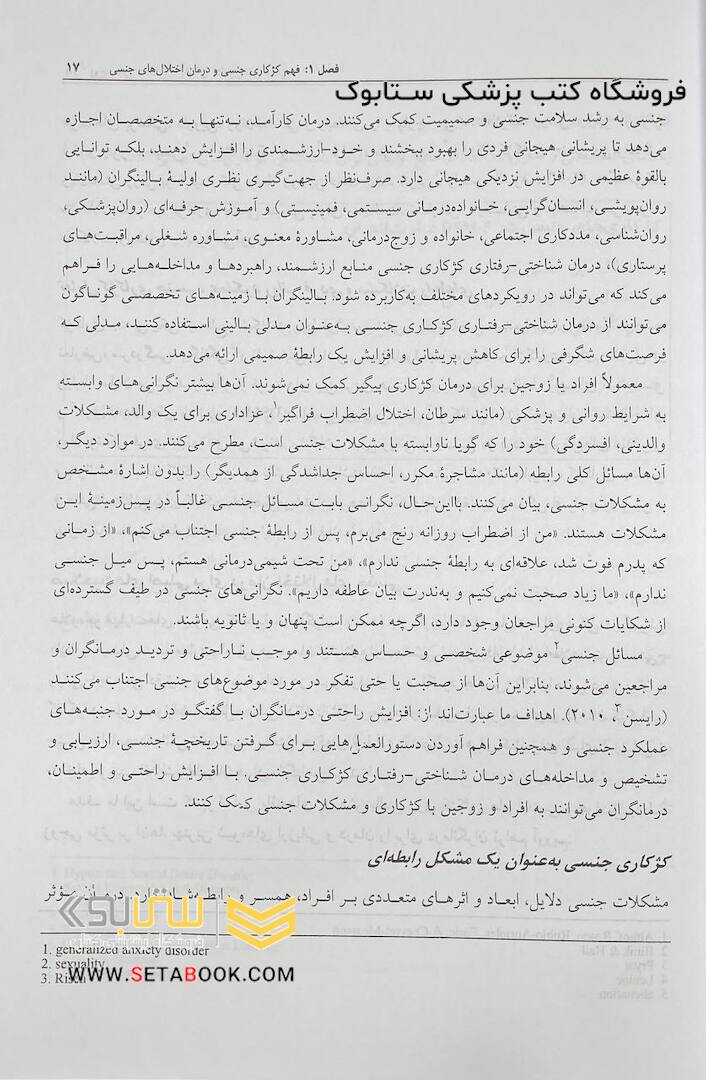 فصل ۱: فهم کژکاری جنسی و درمان اختلال‌های جنسی ۱۷
فروشگاه کتب پزشکی ستابوک
جنسی به رشد سلامت جنسی و صمیمیت کمک می‌کنند. درمان کارآمد، نه‌تنها به متخصصان اجازه
می‌دهد تا پریشانی هیجانی فردی را بهبود ببخشند و خود-ارزشمندی را افزایش دهند، بلکه توانایی
بالقوهٔ عظیمی در افزایش نزدیکی هیجانی دارد. صرف‌نظر از جهت‌گیری نظری اولیهٔ بالینگران (مانند
روان‌پویشی، انسان‌گرایی، خانواده‌درمانی سیستمی، فمینیستی) و آموزش حرفه‌ای (روان‌پزشکی،
روان‌شناسی، مددکاری اجتماعی، خانواده و زوج‌درمانی، مشاورهٔ معنوی، مشاوره شغلی، مراقبت‌های
پرستاری)، درمان شناختی-رفتاری کژکاری جنسی منابع ارزشمند، راهبردها و مداخله‌هایی را فراهم
می‌کند که می‌تواند در رویکردهای مختلف به‌کاربرده شود. بالینگران با زمینه‌های تخصصی گوناگون
می‌توانند از درمان شناختی-رفتاری کژکاری جنسی به‌عنوان مدلی بالینی استفاده کنند، مدلی که
فرصت‌های شگرفی را برای کاهش پریشانی و افزایش یک رابطهٔ صمیمی ارائه می‌دهد.
معمولاً افراد یا زوجین برای درمان کژکاری پیگیر کمک نمی‌شوند. آن‌ها بیشتر نگرانی‌های وابسته
به شرایط روانی و پزشکی (مانند سرطان، اختلال اضطراب فراگیر۱، عزاداری برای یک والد، مشکلات
والدینی، افسردگی) خود را که گویا ناوابسته با مشکلات جنسی است، مطرح می‌کنند. در موارد دیگر،
آن‌ها مسائل کلی رابطه (مانند مشاجرهٔ مکرر، احساس جداشدگی از همدیگر) را بدون اشارهٔ مشخص
به مشکلات جنسی، بیان می‌کنند. بااین‌حال، نگرانی بابت مسائل جنسی غالباً در پس‌زمینهٔ این
مشکلات هستند. «من از اضطراب روزانه رنج می‌برم، پس از رابطهٔ جنسی اجتناب می‌کنم»، «از زمانی
که پدرم فوت شد، علاقه‌ای به رابطهٔ جنسی ندارم»، «من تحت شیمی‌درمانی هستم، پس میل جنسی
ندارم»، «ما زیاد صحبت نمی‌کنیم و به‌ندرت بیان عاطفه داریم». نگرانی‌های جنسی در طیف گسترده‌ای
از شکایات کنونی مراجعان وجود دارد، اگرچه ممکن است پنهان و یا ثانویه باشند.
مسائل جنسی۲ موضوعی شخصی و حساس هستند و موجب ناراحتی و تردید درمانگران و
مراجعین می‌شوند، بنابراین آن‌ها از صحبت یا حتی تفکر در مورد موضوع‌های جنسی اجتناب می‌کنند
(رایسن۳، ۲۰۱۰). اهداف ما عبارت‌اند از: افزایش راحتی درمانگران با گفتگو در مورد جنبه‌های
عملکرد جنسی و همچنین فراهم آوردن دستورالعمل‌هایی برای گرفتن تاریخچهٔ جنسی، ارزیابی و
تشخیص و مداخله‌های درمان شناختی-رفتاری کژکاری جنسی. با افزایش راحتی و اطمینان،
درمانگران می‌توانند به افراد و زوجین با کژکاری و مشکلات جنسی کمک کنند.
کژکاری جنسی به‌عنوان یک مشکل رابطه‌ای
مشکلات جنسی دلایل، ابعاد و اثرهای متعددی بر افراد، همسر و رابطه‌شان دارد. درمان مؤثر
ستابوک
1. generalized anxiety disorder
2. sexuality
WWW.SETABOOK.COM
3. Risen